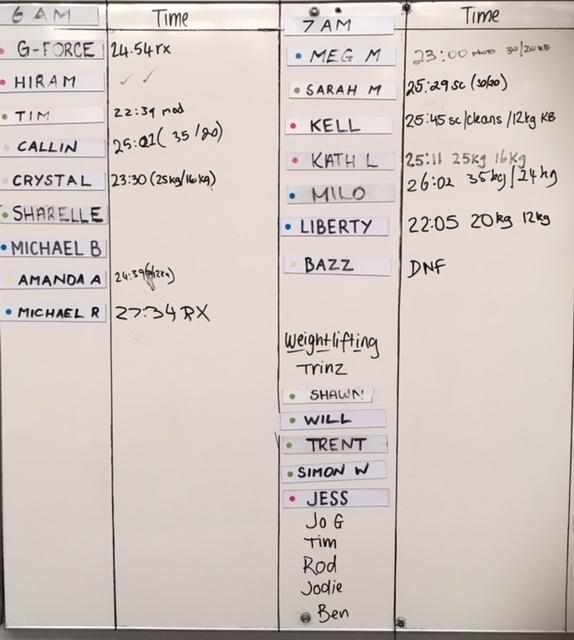 6 AM Time
G-FORCE 24.54 rx
HIRAM ✓ ✓
TIM 22:39 mod
CALLIN 25:01 ( 35 / 20)
CRYSTAL 23:30 (25kg/16KG)
SHARELLE
MICHAEL B
AMANDA A 24:39
MICHAEL R 27:34 RX
7 AM Time
MEG M 23:00 MOD 30/20KB
SARAH M 25:29 sc (30/20)
KELL 25:45 sc/cleans /12kg KB
KATH L 25:11 25kg 16Kg
MILO 26:02 35kg/24kg
LIBERTY 22:05 20kg 12kg
BAZZ DNF
Weightlifting
Trinz
SHAWN
WILL
TRENT
SIMON W
JESS
Jo G
Tim
Rod
Jodie
Ben